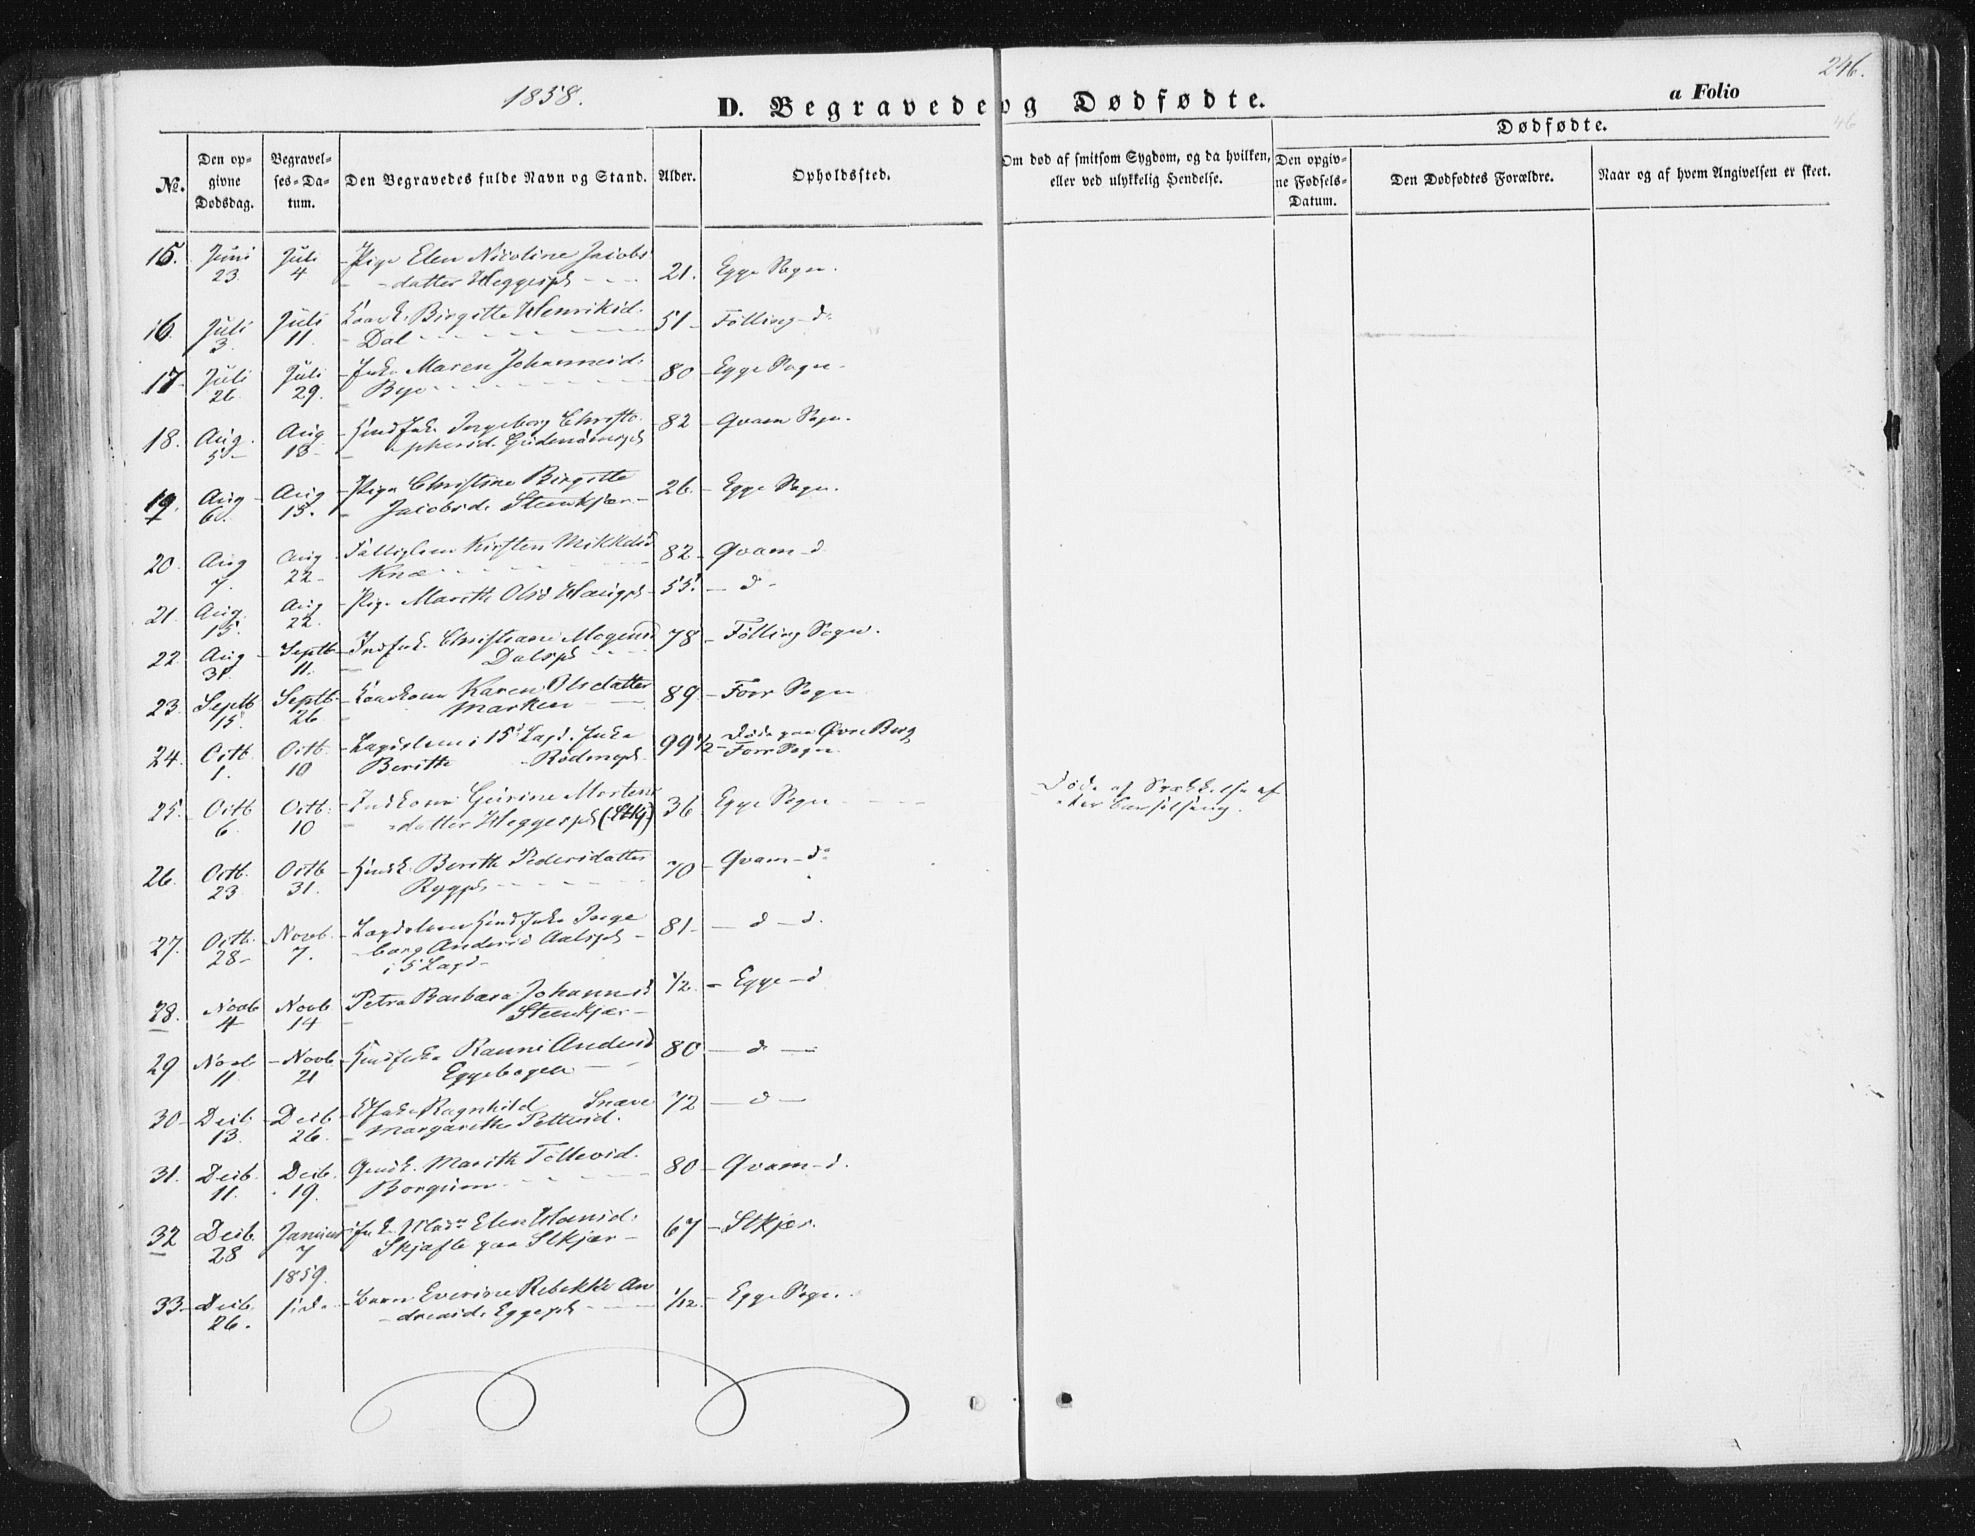 1858.
246.
D. Begravede og Dødfødte.
a Folio
46
Dødfødte.
No.
Den op-
givne
Dødsdag.
Begravel-
ses-Da-
tum.
Den Begravedes fulde Navn og Stand.
Alder.
Opholdssted.
Om død af smitsom Sygdom, og da hvilken,
eller ved ulykkelig Hendelse.
Den opgiv-
ne Fødsels-
Datum.
Den Dødfødtes Forældre.
Naar og af hvem Angivelsen er skeet.
15. Juni 23 Juli 4 Pige Elen Nicoline Jacobs
datter Heggespl 21. Egge Sogn.
16. Juli 3. Juli 11. Birgitte Henriksd.
Dal 51 Følling d.
17 Juli 26. Juli 29. Maren Johannesd.
Bye 80 Egge Sogn.
18. Aug. 5 Aug 18 Ingeborg Christo-
phersd. 82 Qvam Sogn.
19. Aug 6. Aug 15. Pige Christine Birgitte
Jacobsd. Steenkjær 26. Egge Sogn.
20. Aug 7. Aug 22 Kirsten Mikkelsd
Knæ 82 Qvam d
21. Aug. 15. Aug 22. Pige Marith Olsd Haugpl 55. d
22. Aug 31. Septb 11. Christiane Mogensd
Dalspl 78 Følling Sogn.
23. Septb 15. Septb. 26 Kaarkone Karen Olsdatter
Marken 89. Forr Sogn
24. Octb. 1. Octb. 10 Lægdslem i 15d Lægd. Enke
Berith Rødengpl. 99 1/2 Døde paa Øvre Berg
Forr Sogn.
25. Octb 6. Octb. 10 Indkone Gurine Mortens
datter Heggespl (Stkj) 36 Egge Sogn
Døde af
26. Octb. 23. Octb 31. Berith Pedersdatter
Ryggpl 70 Qvam d.
27. Octb. 28 Novb. 7. Lægdslem Inge
borg Andersd Aalspl
i 5 Lægd 81 d d.
28. Novb 4 Novb 14 Petra Barbara Johannesd
Steenkjær 1/2. Egge d
29 Novb 11. Novb. 21 Ranni Andersd
Eggebogen 80 d
30 Decb. 13. Decb 26. Enke Ragnhild
Margarethe Pettersd. 72 d
31. Decb. 11. Decb. 19. Marith Tollevsd.
Borgum 80 Qvam d.
32 Decb. 28 Januar 7 Elen Hansd.
Skjefte paa Stkjær 67 Stkjær.
1859.
33. Decb. 26. Barn Everine Rebekke An
dreasd. Eggepl 1/12. Egge Sogn.